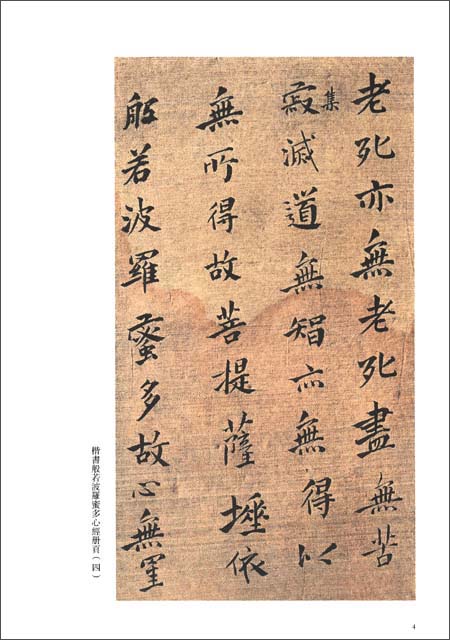 老死亦無老死盡無苦
集
寂滅道無智亦無得以
無所得故菩提薩埵依
般若波羅蜜多故心無罣
楷書般若波羅蜜多心經册頁（四）
4